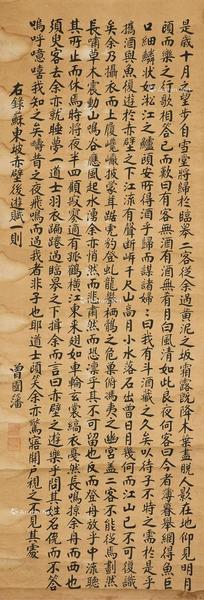 是歲十月之望步自雪堂將歸于臨皋二客從余過黃泥之坂霜露既降木葉盡脫人影在地仰見明月
顧而樂之行歌相答已而歎曰有客無酒有酒無肴月白風清如此良夜何客曰今者薄暮舉網得魚巨
口細鱗狀如淞江之鱸顧安所得酒乎歸而謀諸婦:曰我有斗酒藏之久矣以待子不時之需於是乎
攜酒與魚復遊於赤壁之下江流有聲斷岸千尺山高月小水落石出曾日月幾何而江山已不可復識
矣余乃攝衣而上履巉巖披蒙茸踞虎豹登虬龍攀栖鶻之危巢俯馮夷之幽宮蓋二客不能從焉劃然
長嘯草木震動山鳴谷應風起水湧余亦悄然而悲肅然而恐凜乎其不可留也反而登舟放乎中流聽
其所止而休焉時夜將半四顧寂寥適有孤鶴橫江東來翅如車輪玄裳縞衣戛然長鳴掠余舟而西也
須臾客去余亦就睡夢一道士羽衣蹁躚過臨皋之下揖余而言曰赤壁之遊樂乎問其姓名俛而不答
嗚呼噫嘻我知之矣疇昔之夜飛鳴而過我者非子也耶道士顧笑余亦驚寤開戶視之不見其處
右錄蘇東坡赤壁後遊賦一則
曾國藩